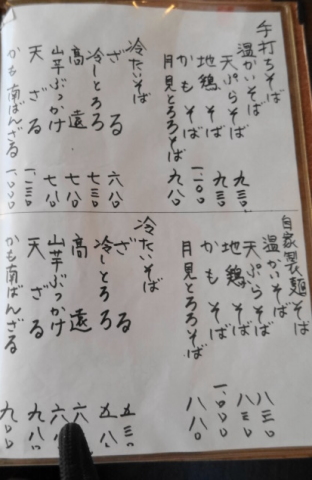 手打ちそば
温かいそば
天ぷらそば 九三〇
地鶏そば 九三〇
かもそば
月見とろろそば 九八〇
冷たいそば
ざる 六八〇
冷しとろろ 七三〇
高遠 七八〇
山芋ぶっかけ 七八〇
天ざる
かも南ばんざる 一、〇〇〇
自家製麺そば
温かいそば
天ぷらそば 八三〇
地鶏そば 八三〇
かもそば 一、〇〇〇
月見とろろそば 八八〇
冷たいそば
ざる 五三〇
冷しとろろ 五八〇
高遠
山芋ぶっかけ
天ざる 九八〇
かも南ばんざる 九〇〇